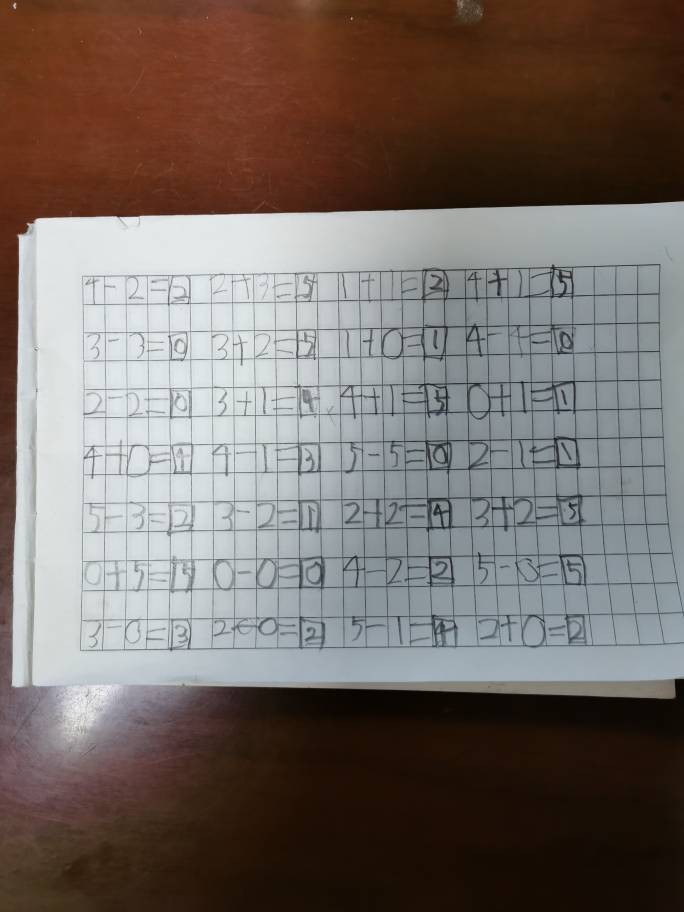 4-2=2 2+3=5 1+1=2 4+1=5
3-3=0 3+2=5 1+0=1 4-4=0
2-2=0 3+1=4 4+1=5 0+1=1
4+0=4 4-1=3 5-5=0 2-1=1
5-3=2 3-2=1 2+2=4 3+2=5
0+5=5 0-0=0 4-2=2 5-0=5
3-0=3 2-0=2 5-1=4 2+0=2